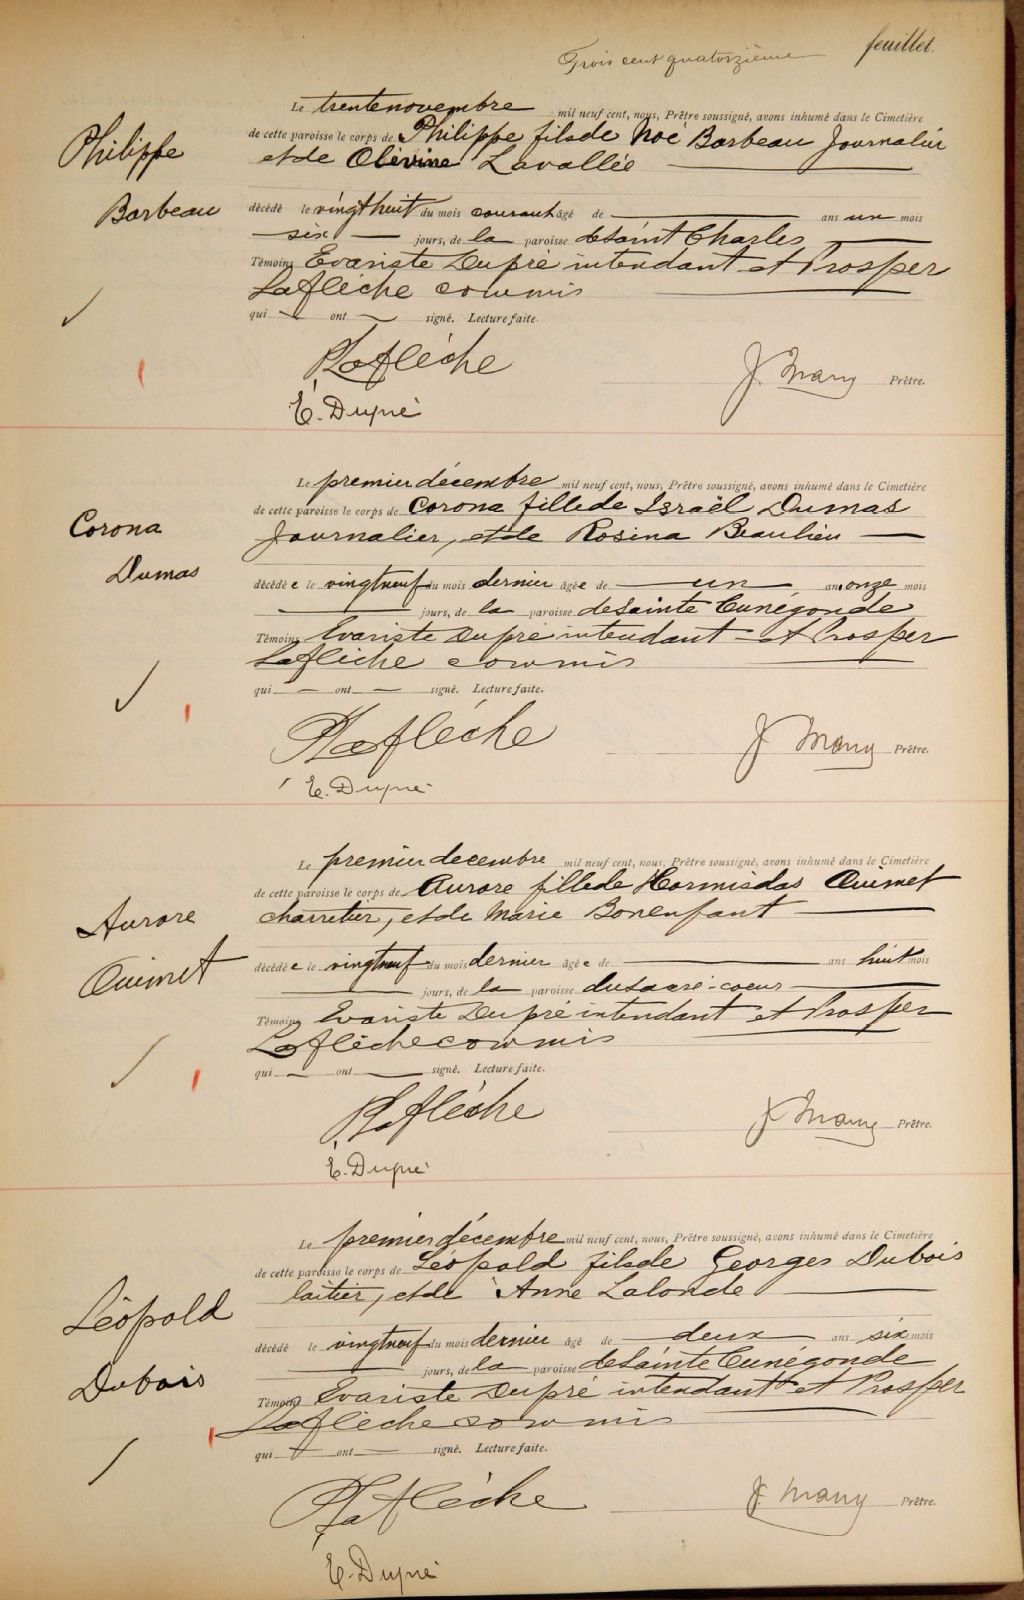 Trois cent quatorzième feuillet.
Philippe
Barbeau
Le trente novembre mil neuf cent, nous, Prêtre soussigné, avons inhumé dans le Cimetière
de cette paroisse le corps de Philippe fils de Noé Barbeau Journalier
et de Olévine Lavallée
décédé le vingt huit du mois courant âgé de ans un mois
six jours, de la paroisse de Saint Charles
Témoins Evariste Dupré intendant et Prosper
Laflèche commis
qui ont signé. Lecture faite.
P Laflèche
J. Mary Prêtre.
E. Dupré
Corona
Dumas
Le premier décembre mil neuf cent, nous, Prêtre soussigné, avons inhumé dans le Cimetière
de cette paroisse le corps de Corona fille de Israël Dumas
Journalier, et de Rosina Beaulieu
décédée le vingt neuf du mois dernier âgée de un an onze mois
jours, de la paroisse de Sainte Cunégonde
Témoins Evariste Dupré intendant et Prosper
Laflèche commis
qui ont signé. Lecture faite.
P Laflèche
J Mary Prêtre.
E. Dupré
Aurore
Ouimet
Le premier decembre mil neuf cent, nous, Prêtre soussigné, avons inhumé dans le Cimetière
de cette paroisse le corps de Aurore fille de Hormisdas Ouimet
charretier, et de Marie Bonenfant
décédée le vingt neuf du mois dernier âgée de ans huit mois
jours, de la paroisse du Sacré-coeur
Témoins Evariste Dupré intendant et Prosper
Laflèche commis
qui ont signé. Lecture faite.
P Laflèche
J Mary Prêtre.
E. Dupré
Léopold
Dubois
Le premier décembre mil neuf cent, nous, Prêtre soussigné, avons inhumé dans le Cimetière
de cette paroisse le corps de Léopold fils de Georges Dubois
laitier, et de Anne Lalonde
décédé le vingt neuf du mois dernier âgé de deux ans six mois
jours, de la paroisse de Sainte Cunégonde
Témoins Evariste Dupré intendant et Prosper
Laflèche commis
qui ont signé. Lecture faite.
P Laflèche
J. Mary Prêtre.
E. Dupré